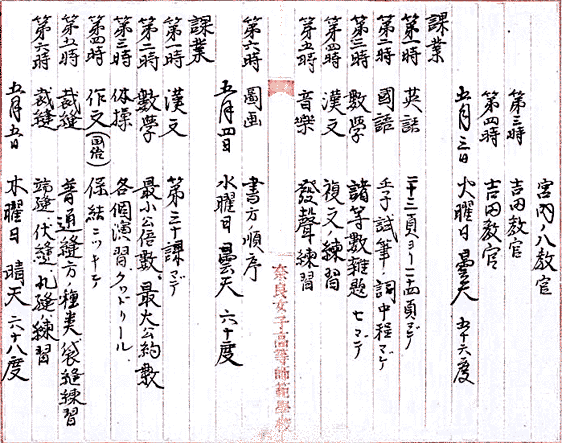 宮内ノ八教官
第三時 吉田教官
第四時 吉田教官
五月三日 火曜日 曇天 五十六度
課業
第一時 英語 二十三頁ヨリ二十四頁マデ
第二時 國語 壬子試筆ノ詞中程マデ
第三時 數學 諸等數雜題七マデ
第四時 漢文 複文ノ練習
第五時 音樂 發聲練習
奈良女子高等師範學校
第六時 圖画 書方ノ順序
五月四日 水曜日 曇天 六十度
課業
第一時 漢文 第三十課マデ
第二時 數學 最小公倍數、最大公約數
第三時 体操 各個演習、クワドリール
第四時 作文 保結ニツキテ
第五時 裁縫 普通縫方ノ種類 袋縫練習
第六時 裁縫 端縫、伏縫、丸縫ノ練習
五月五日 木曜日 晴天 六十八度